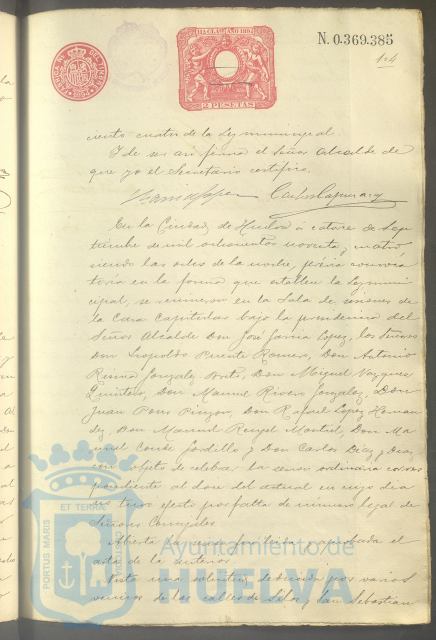 N. 0.369.385
104
11ª CLASE AÑO 1894
2 PESETAS
ciento cuatro de la Ley municipal.
Y de ser así firma el Señor Alcalde de
que yo el Secretario certifico.
En la Ciudad de Huelva á catorce de Sep
tiembre de mil ochocientos noventa y cuatro
siendo las ocho de la noche, prévia convoca
toria en la forma que establece la Ley muni
cipal, se reunieron en la Sala de sesiones de
la Casa Capitular bajo la presidencia del
Señor Alcalde Don José García Lopez, los Señores
Don Leopoldo Puente Romero, Don Antonio
Gonzalez Don Miguel Vazquez
Quintero, Don Manuel Rivero Gonzalez, Don
Juan Pinzon, Don Rafael Lopez Hernan
dez, Don Manuel Rengel Don Ma
nuel Conde Gordillo y Don Carlos Diaz y Diaz,
con objeto de celebrar la sesion ordinaria corres
pondiente al doce del actual en cuyo dia
no tuvo efecto por falta de número legal de
Señores Concejales.
Abierta la sesion fue leida y aprobada el
acta de la anterior.
Vista una solicitud deducida por varios
vecinos de las calles de Silos y San Sebastian
PORTUS MARIS
ET TERRAE
CUSTODIA
Ayuntamiento de
HUELVA